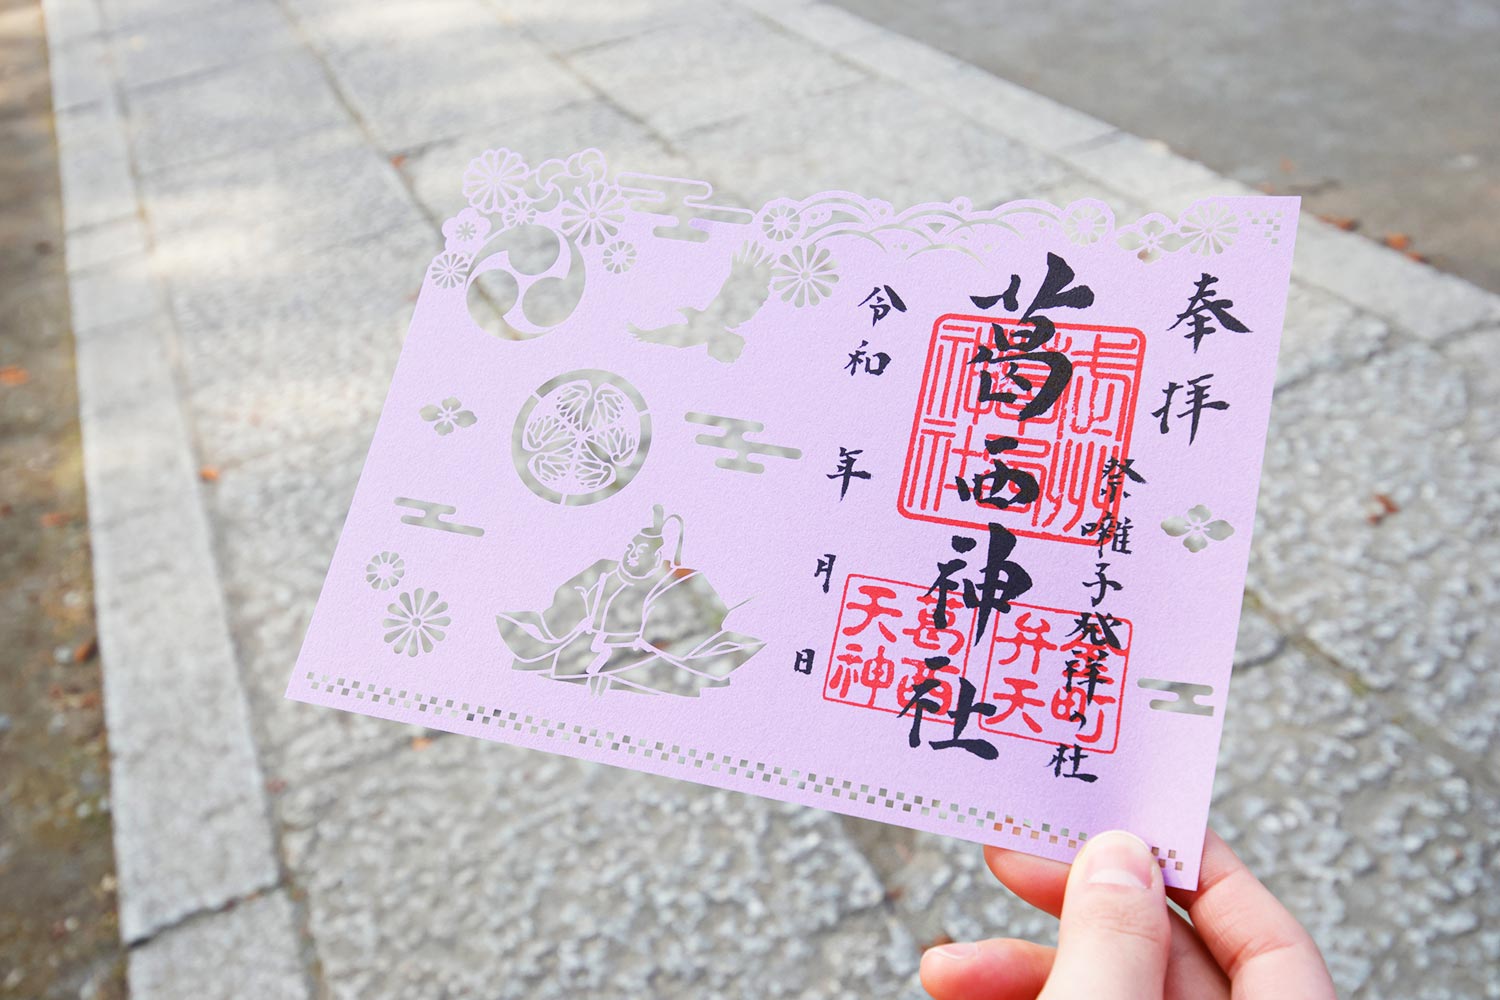 奉拝
祭囃子発祥の社
葛西神社
令和 年 月 日
武州
葛西
神社
葛西
天神
金町
弁天